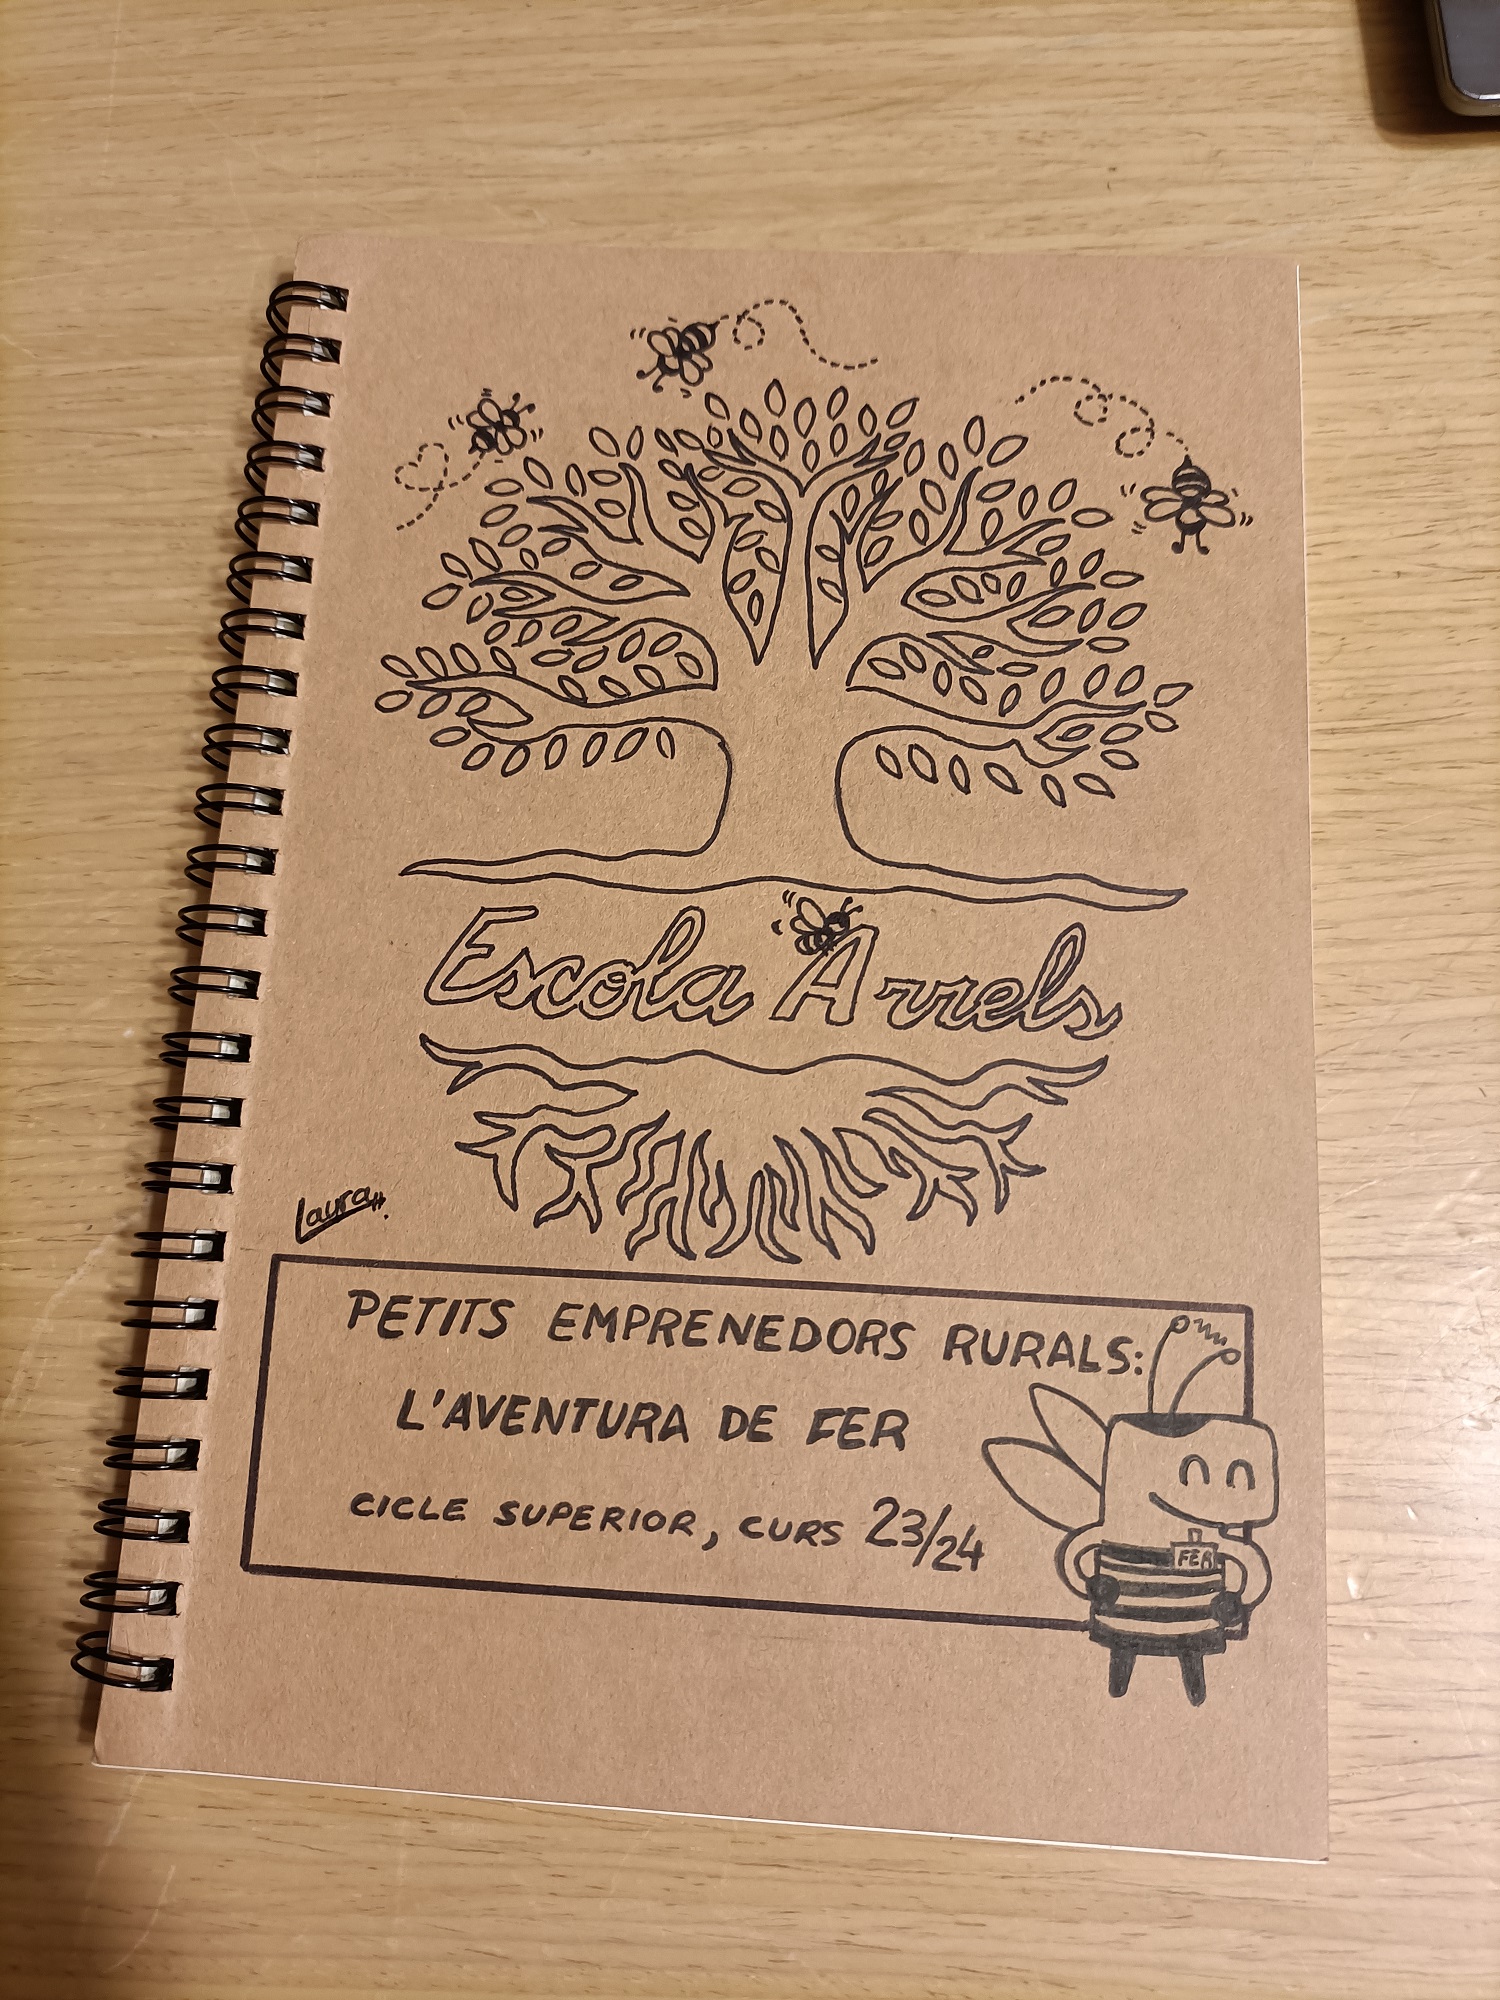 Escola Arrels
Laura
PETITS EMPRENEDORS RURALS:
L'AVENTURA DE FER
CICLE SUPERIOR, CURS 23/24
FER